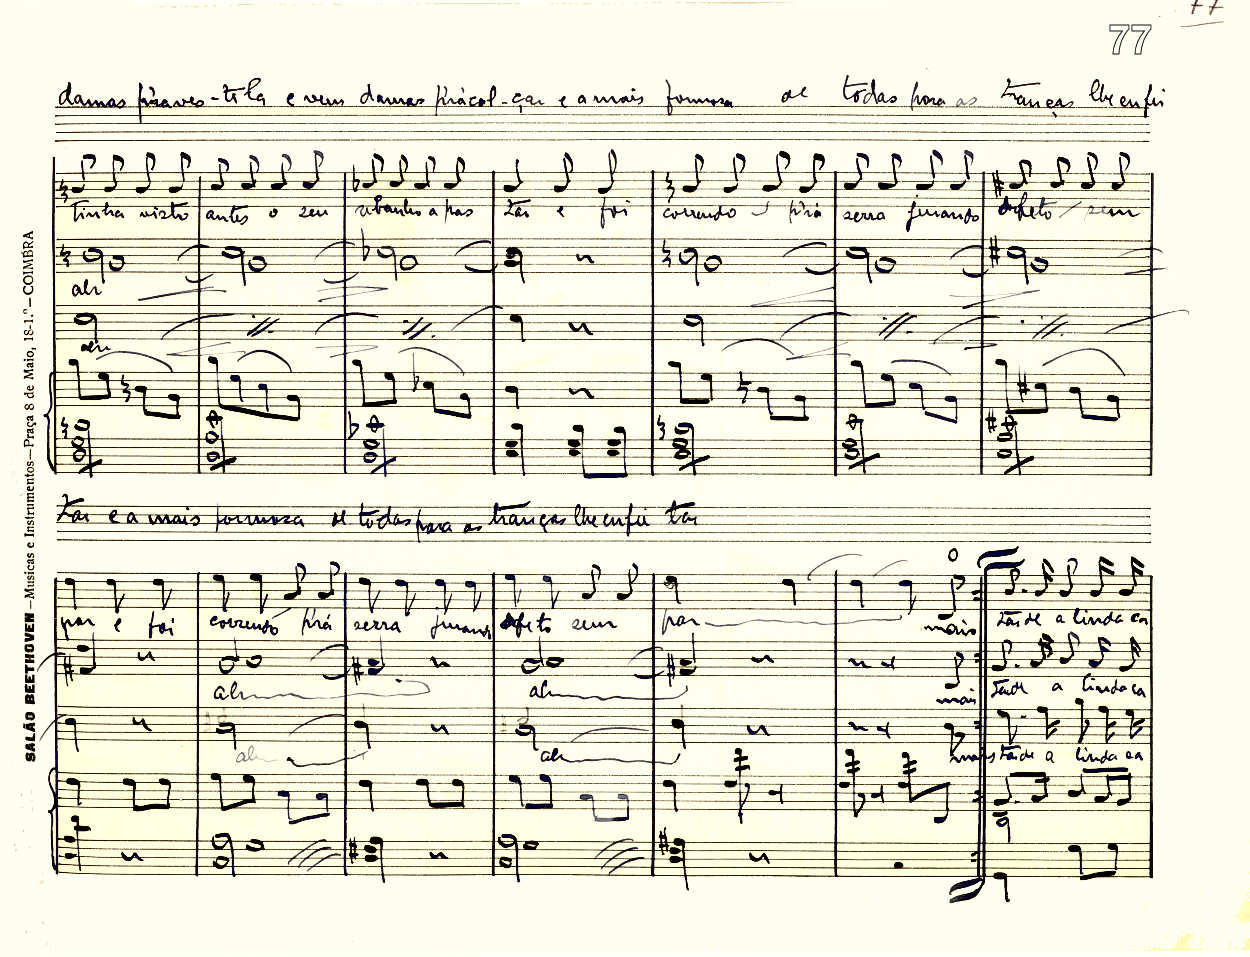 77
77
damas e vem damas e a mais formosa de todas para as tranças lhe enfei
tinha visto antes o seu rebanho a pas tar e foi correndo p'rá serra jurando sem
ah
ah
tar e a mais formosa de todas para as tranças lhe enfei tar
par e foi correndo p'rá serra sem par mais tarde a linda ca
ah ah mais tarde a linda ca
ah ah mais tarde a linda ca
SALÃO BEETHOVEN—Musicas e Instrumentos—Praça 8 de Maio, 18-1.º—COIMBRA